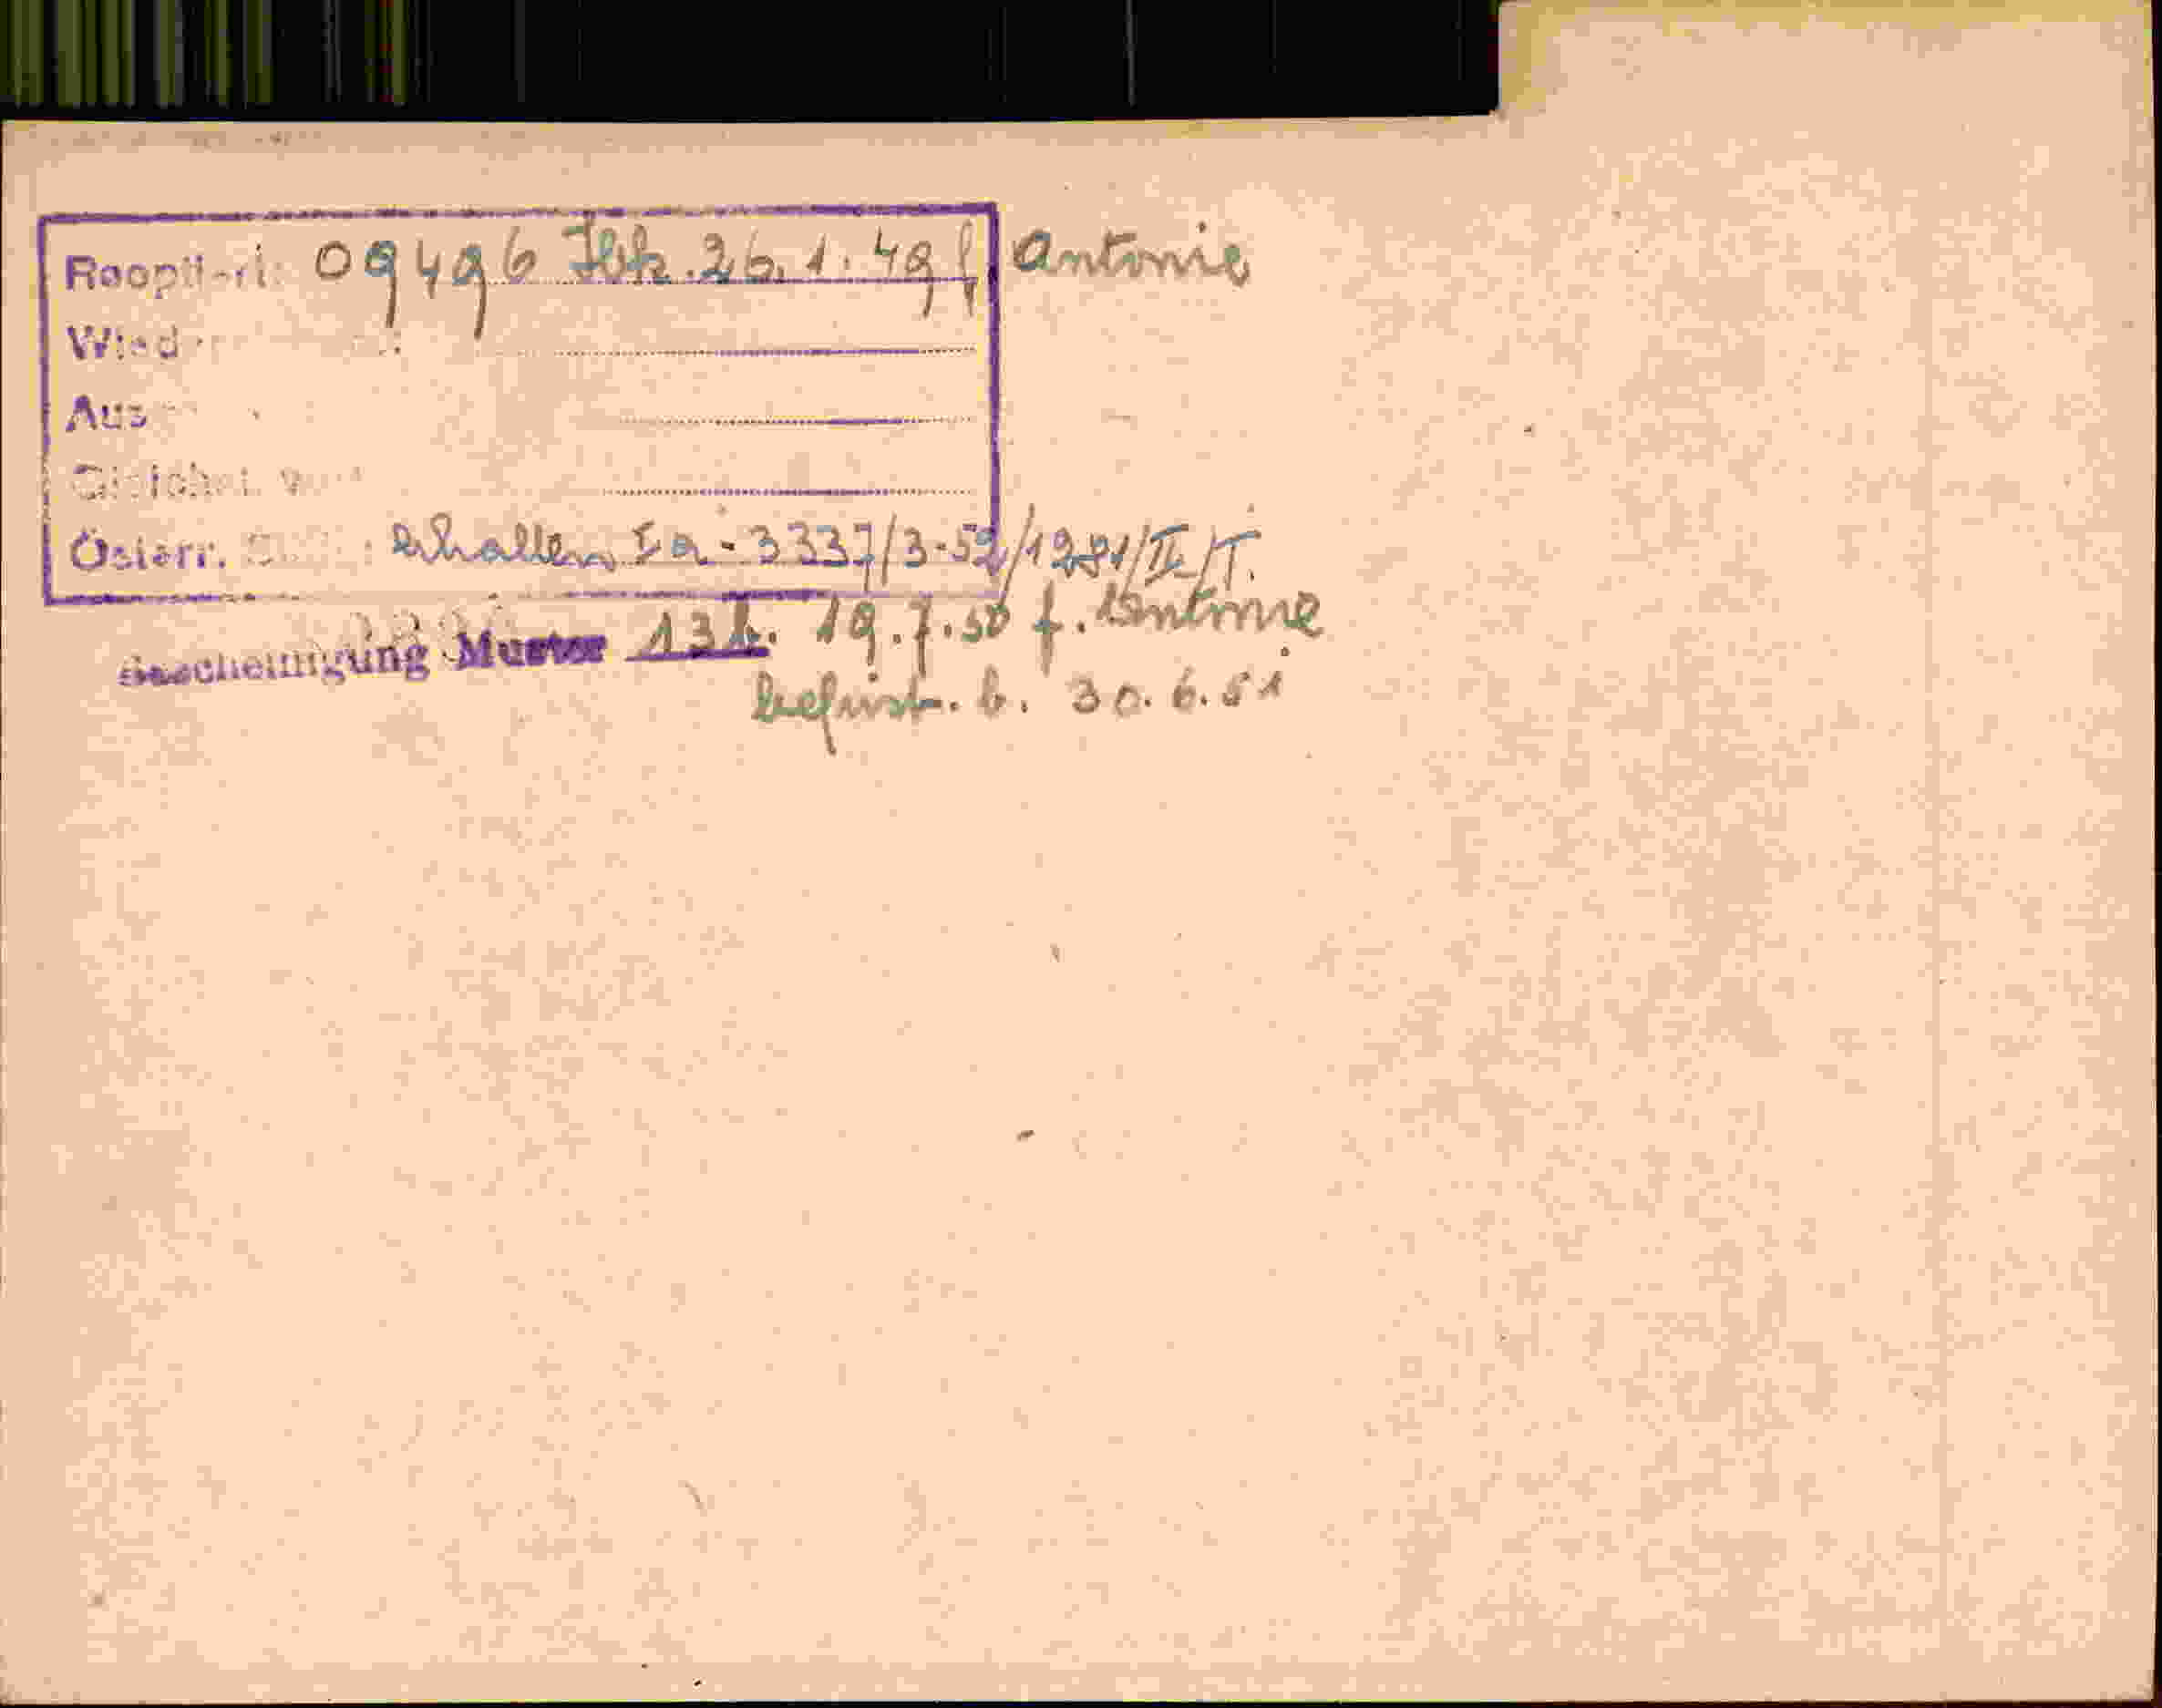 Reoptiert: 09496 Ibk. 26.1.49 f Antonie
Wied
Aus
Österr. erhalten Ia-3337/3-52/1281/II/T.
Bescheinigung Muster 13 19.7.50 f. Antonie
befrist. b. 30.6.51